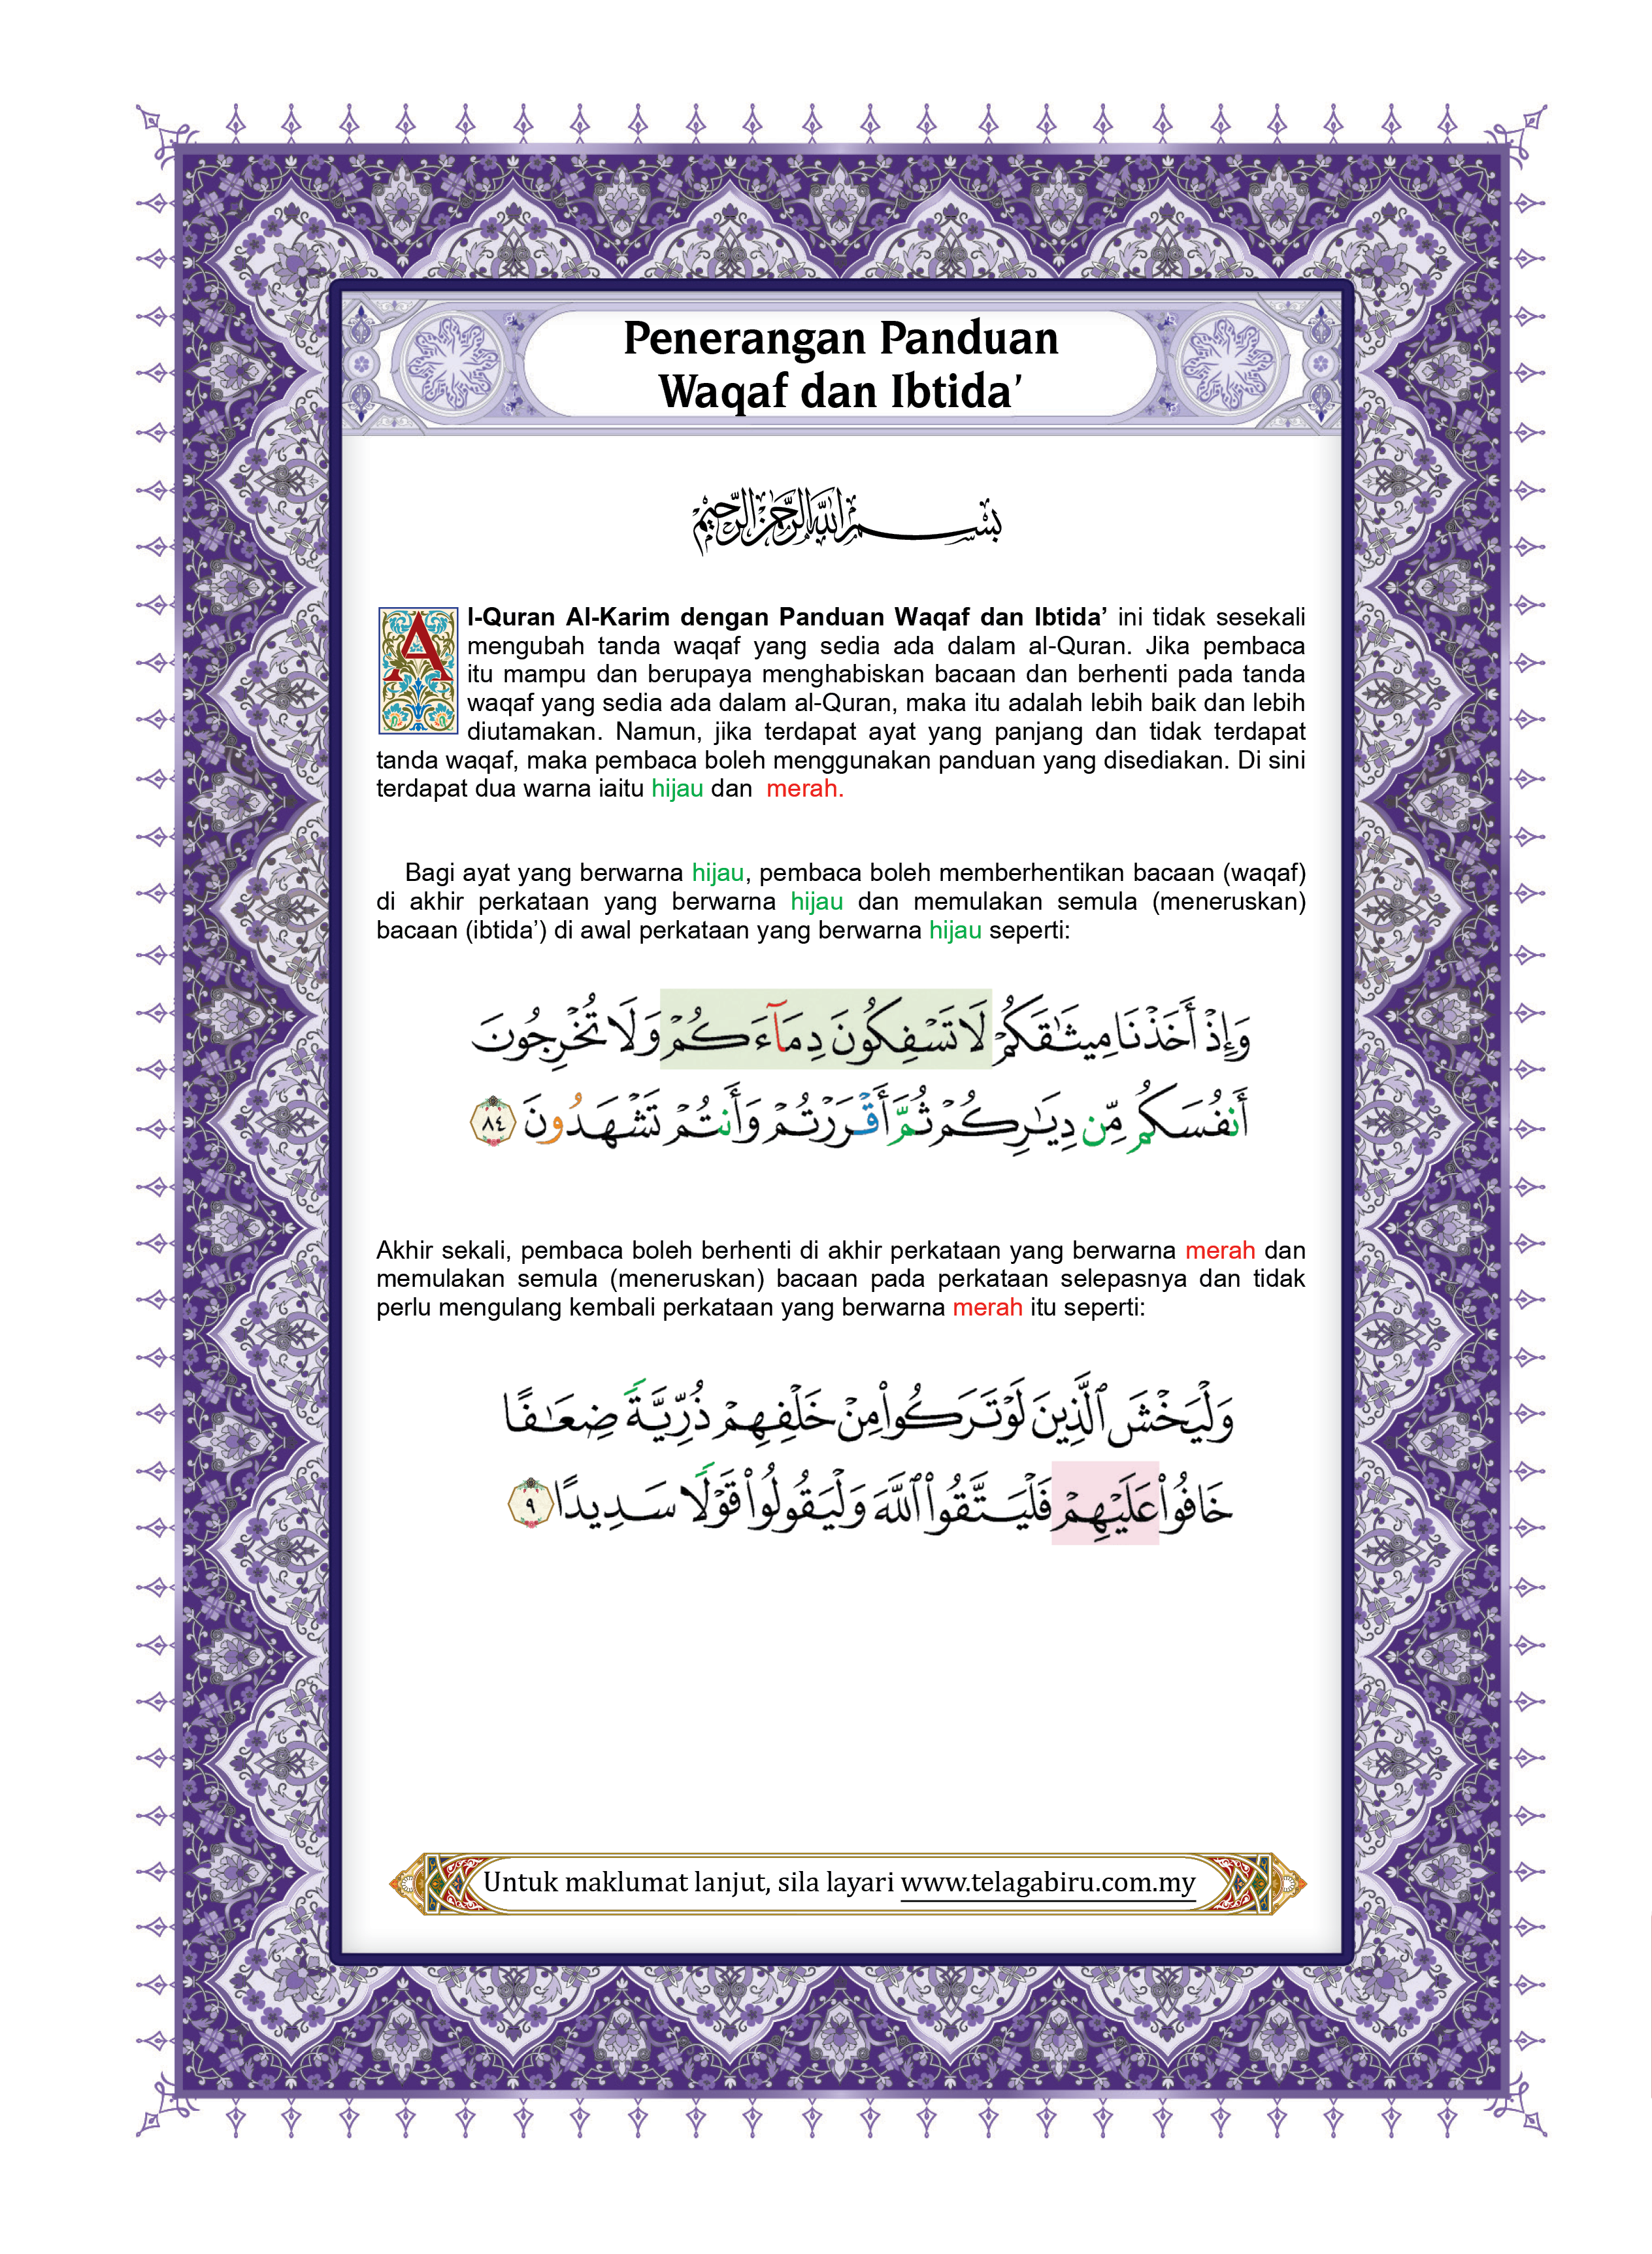 Penerangan Panduan
Waqaf dan Ibtida’
بِسْمِ اللَّهِ الرَّحْمَٰنِ الرَّحِيمِ
Al-Quran Al-Karim dengan Panduan Waqaf dan Ibtida’ ini tidak sesekali
mengubah tanda waqaf yang sedia ada dalam al-Quran. Jika pembaca
itu mampu dan berupaya menghabiskan bacaan dan berhenti pada tanda
waqaf yang sedia ada dalam al-Quran, maka itu adalah lebih baik dan lebih
diutamakan. Namun, jika terdapat ayat yang panjang dan tidak terdapat
tanda waqaf, maka pembaca boleh menggunakan panduan yang disediakan. Di sini
terdapat dua warna iaitu hijau dan merah.
Bagi ayat yang berwarna hijau, pembaca boleh memberhentikan bacaan (waqaf)
di akhir perkataan yang berwarna hijau dan memulakan semula (meneruskan)
bacaan (ibtida’) di awal perkataan yang berwarna hijau seperti:
وَإِذْ أَخَذْنَا مِيثَٰقَكُمْ لَا تَسْفِكُونَ دِمَآءَكُمْ وَلَا تُخْرِجُونَ
أَنفُسَكُم مِّن دِيَٰرِكُمْ ثُمَّ أَقْرَرْتُمْ وَأَنتُمْ تَشْهَدُونَ ٨٤
Akhir sekali, pembaca boleh berhenti di akhir perkataan yang berwarna merah dan
memulakan semula (meneruskan) bacaan pada perkataan selepasnya dan tidak
perlu mengulang kembali perkataan yang berwarna merah itu seperti:
وَلْيَخْشَ ٱلَّذِينَ لَوْ تَرَكُوا۟ مِنْ خَلْفِهِمْ ذُرِّيَّةً ضِعَٰفًا
خَافُوا۟ عَلَيْهِمْ فَلْيَتَّقُوا۟ ٱللَّهَ وَلْيَقُولُوا۟ قَوْلًا سَدِيدًا ٩
Untuk maklumat lanjut, sila layari www.telagabiru.com.my